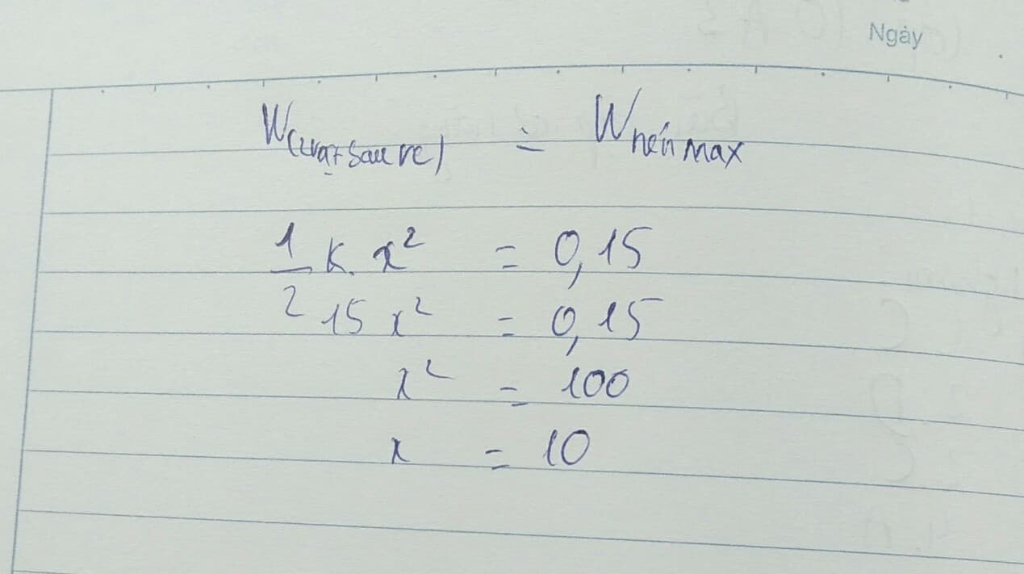 Ngày
W(2vật sau vc) = Wnén max
1/2 k. x² = 0,15
15 x² = 0,15
x² = 100
x = 10